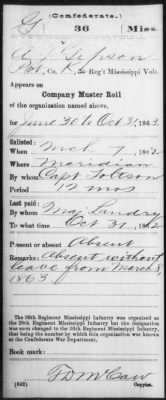 (Confederate.)
G 36 Miss.
A J Gipson
Pvt, Co. K, 36 Reg't Mississippi Vols.
Appears on
Company Muster Roll
of the organization named above,
for June 30 to Oct 31, 1863.
Enlisted:
When Mch 7, 1862
Where Meridian
By whom Capt
Period 12 mos
Last paid:
By whom Maj Landry
To what time Oct 31, 1862
Present or absent Absent
Remarks: Absent without
leave from March 8,
1863
The 36th Regiment Mississippi Infantry was organized as
the Regiment Mississippi Infantry but the designation
was soon changed to the 36th Regiment Mississippi Infantry,
that being the number by which this organization was known
at the Confederate War Department.
Book mark:
F D McCaw
(642) Copyist.